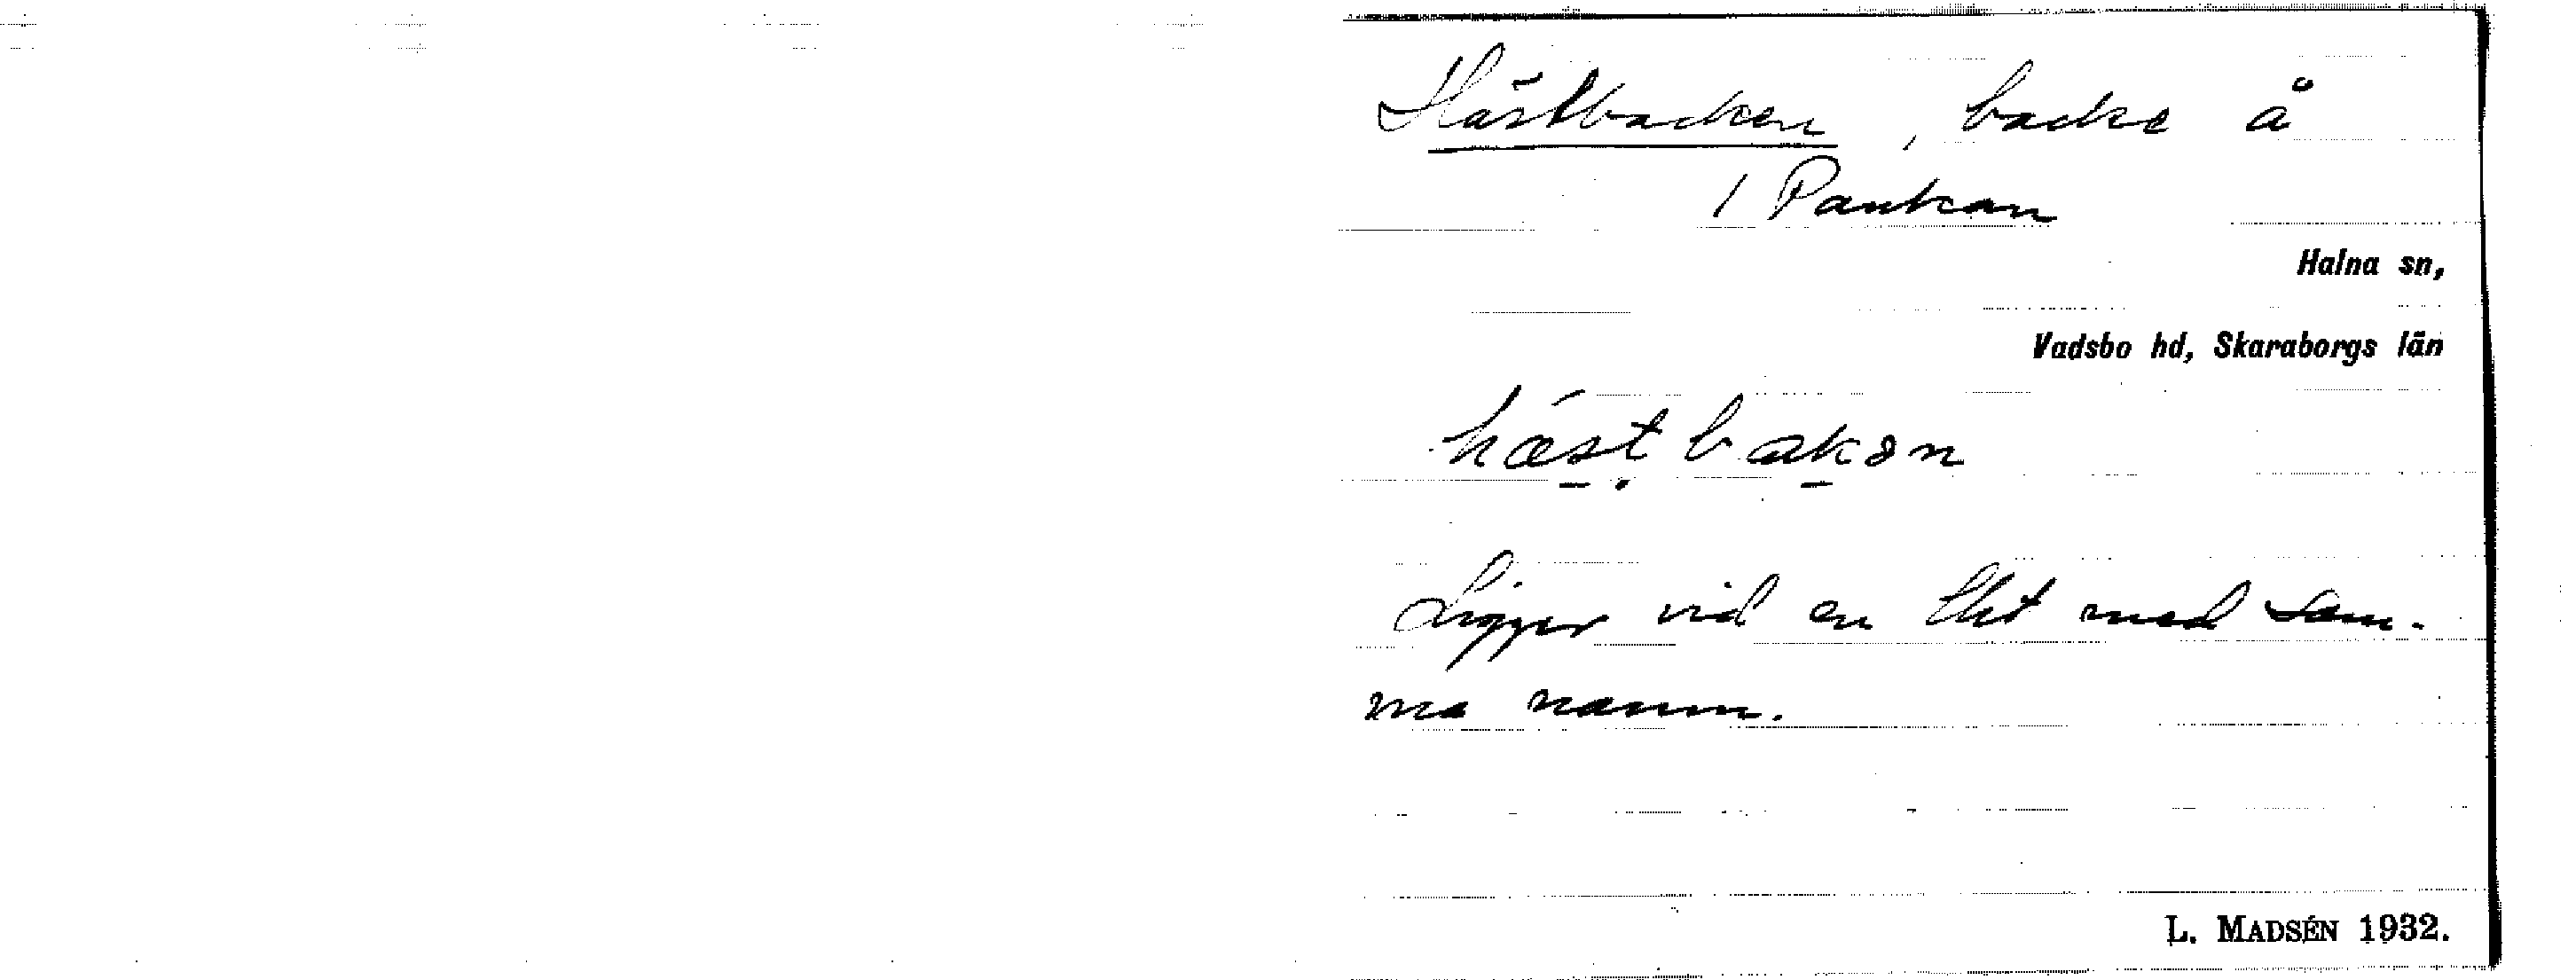 Hästbacken, backe å
1 Pankan
Halna sn,
Vadsbo hd, Skaraborgs län
hǽstbakən
Ligger vid en tkt med sam-
ma namn.
L. MADSÉN 1932.